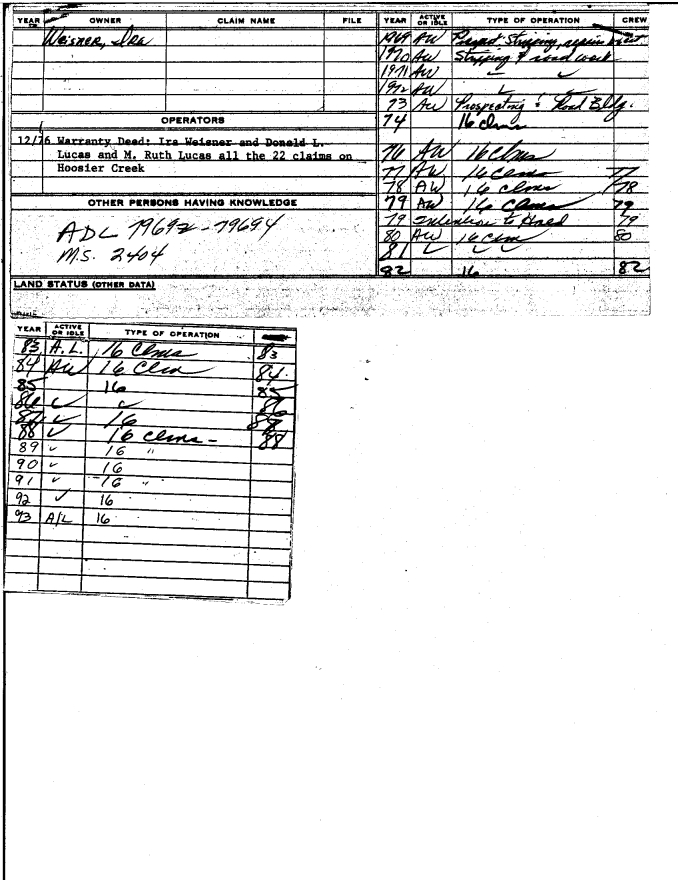 YEAR OWNER CLAIM NAME FILE
Weisner, Ira
OPERATORS
12/76 Warranty Deed: Ira Weisner and Donald L.
Lucas and M. Ruth Lucas all the 22 claims on
Hoosier Creek
OTHER PERSONS HAVING KNOWLEDGE
ADL 79692-79694
M.S. 2404
LAND STATUS (OTHER DATA)
YEAR ACTIVE OR IDLE TYPE OF OPERATION CREW
1969 AW Stripping,
1970 AW Stripping & road work
1971 AW ✓ ✓
1972 AW ✓ ✓
73 AW Prospecting & Road Bldg.
74 16 clms
76 AW 16 Clms
77 AW 16 Clms 77
78 AW 16 clms 78
79 AW 16 Clms 79
79 Intention to Hold 79
80 AW 16 Clm 80
81 ✓ ✓ ✓
82 16 82
YEAR ACTIVE OR IDLE TYPE OF OPERATION
83 A.L. 16 Clms 83
84 AW 16 Clm 84
85 16 85
86 ✓ ✓ 86
87 ✓ 16 87
88 ✓ 16 clms - 88
89 ✓ 16 "
90 ✓ 16
91 ✓ 16 "
92 ✓ 16
93 A/L 16